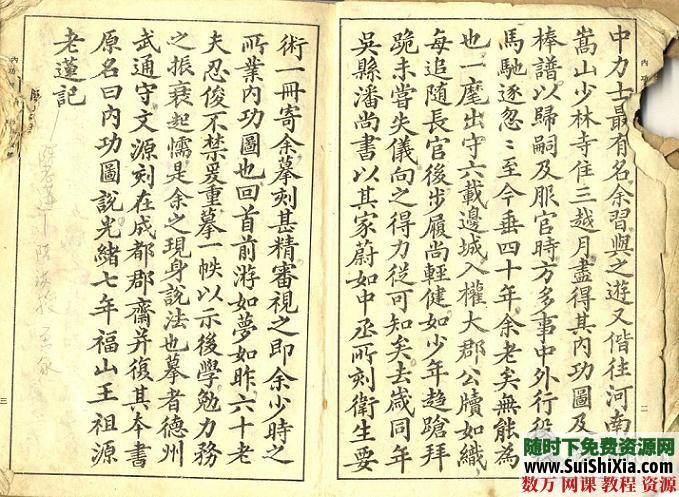 中力士最有名余習與之遊又偕往河南
嵩山少林寺住三越月盡得其內功圖及
棒譜以歸嗣及服官時方多事中外行役
馬馳逐忽〻至今垂四十年余老矣無能為
也一麾出守六載邊城入權大郡公牘如織
每追随長官後步履尚輕健如少年趋蹌拜
跪未嘗失儀向之得力従可知矣去歳同年
吳縣潘尚書以其家蔚如中丞所刻衛生要
術一冊寄余摹刻甚精審視之即余少時之
所業內功圖也回首前游如夢如昨六十老
夫忍俊不禁爰重摹一帙以示後學勉力務
之振衰起懦是余之現身說法也摹者德州
武通守文源刻在成都郡齋并復其本書
原名曰內功圖說光緒七年福山王祖源
老蓮記
內功
內功
二
三
随时下免费资源网
www.SuiShiXia.com
数万 网课 教程 资源